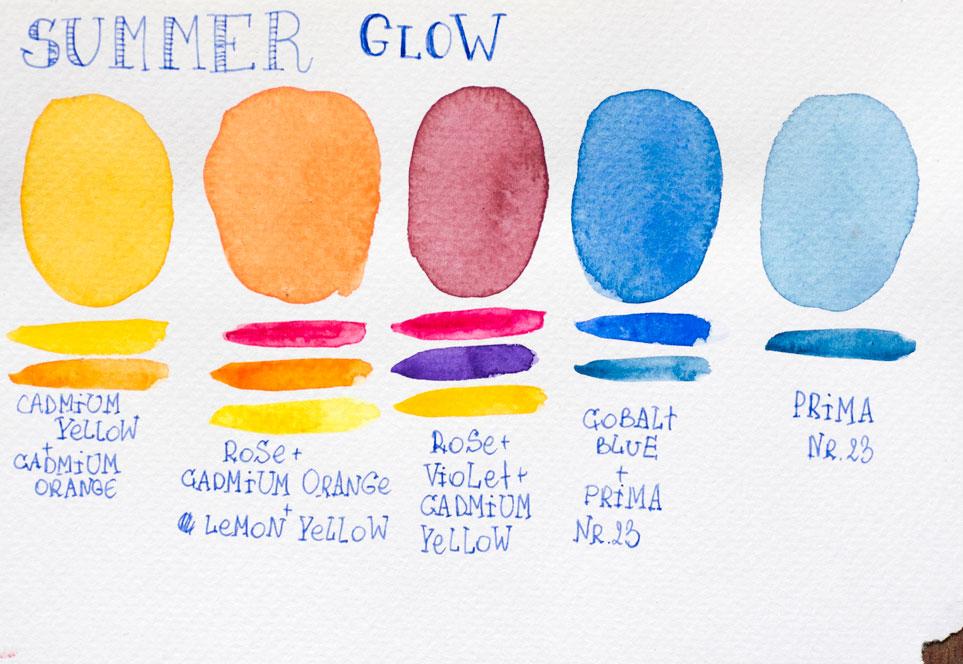 SUMMER GLOW
CADMiUM
YeLLOW
+
CADMiUM
ORANGE
RoSe+
CADMiUM ORANGe
+
LeMON YeLLOW
RoSe+
VioLet+
CADMiUM
YeLLoW
COBALt
BLUE
+
PRiMA
NR.23
PRiMA
NR.23